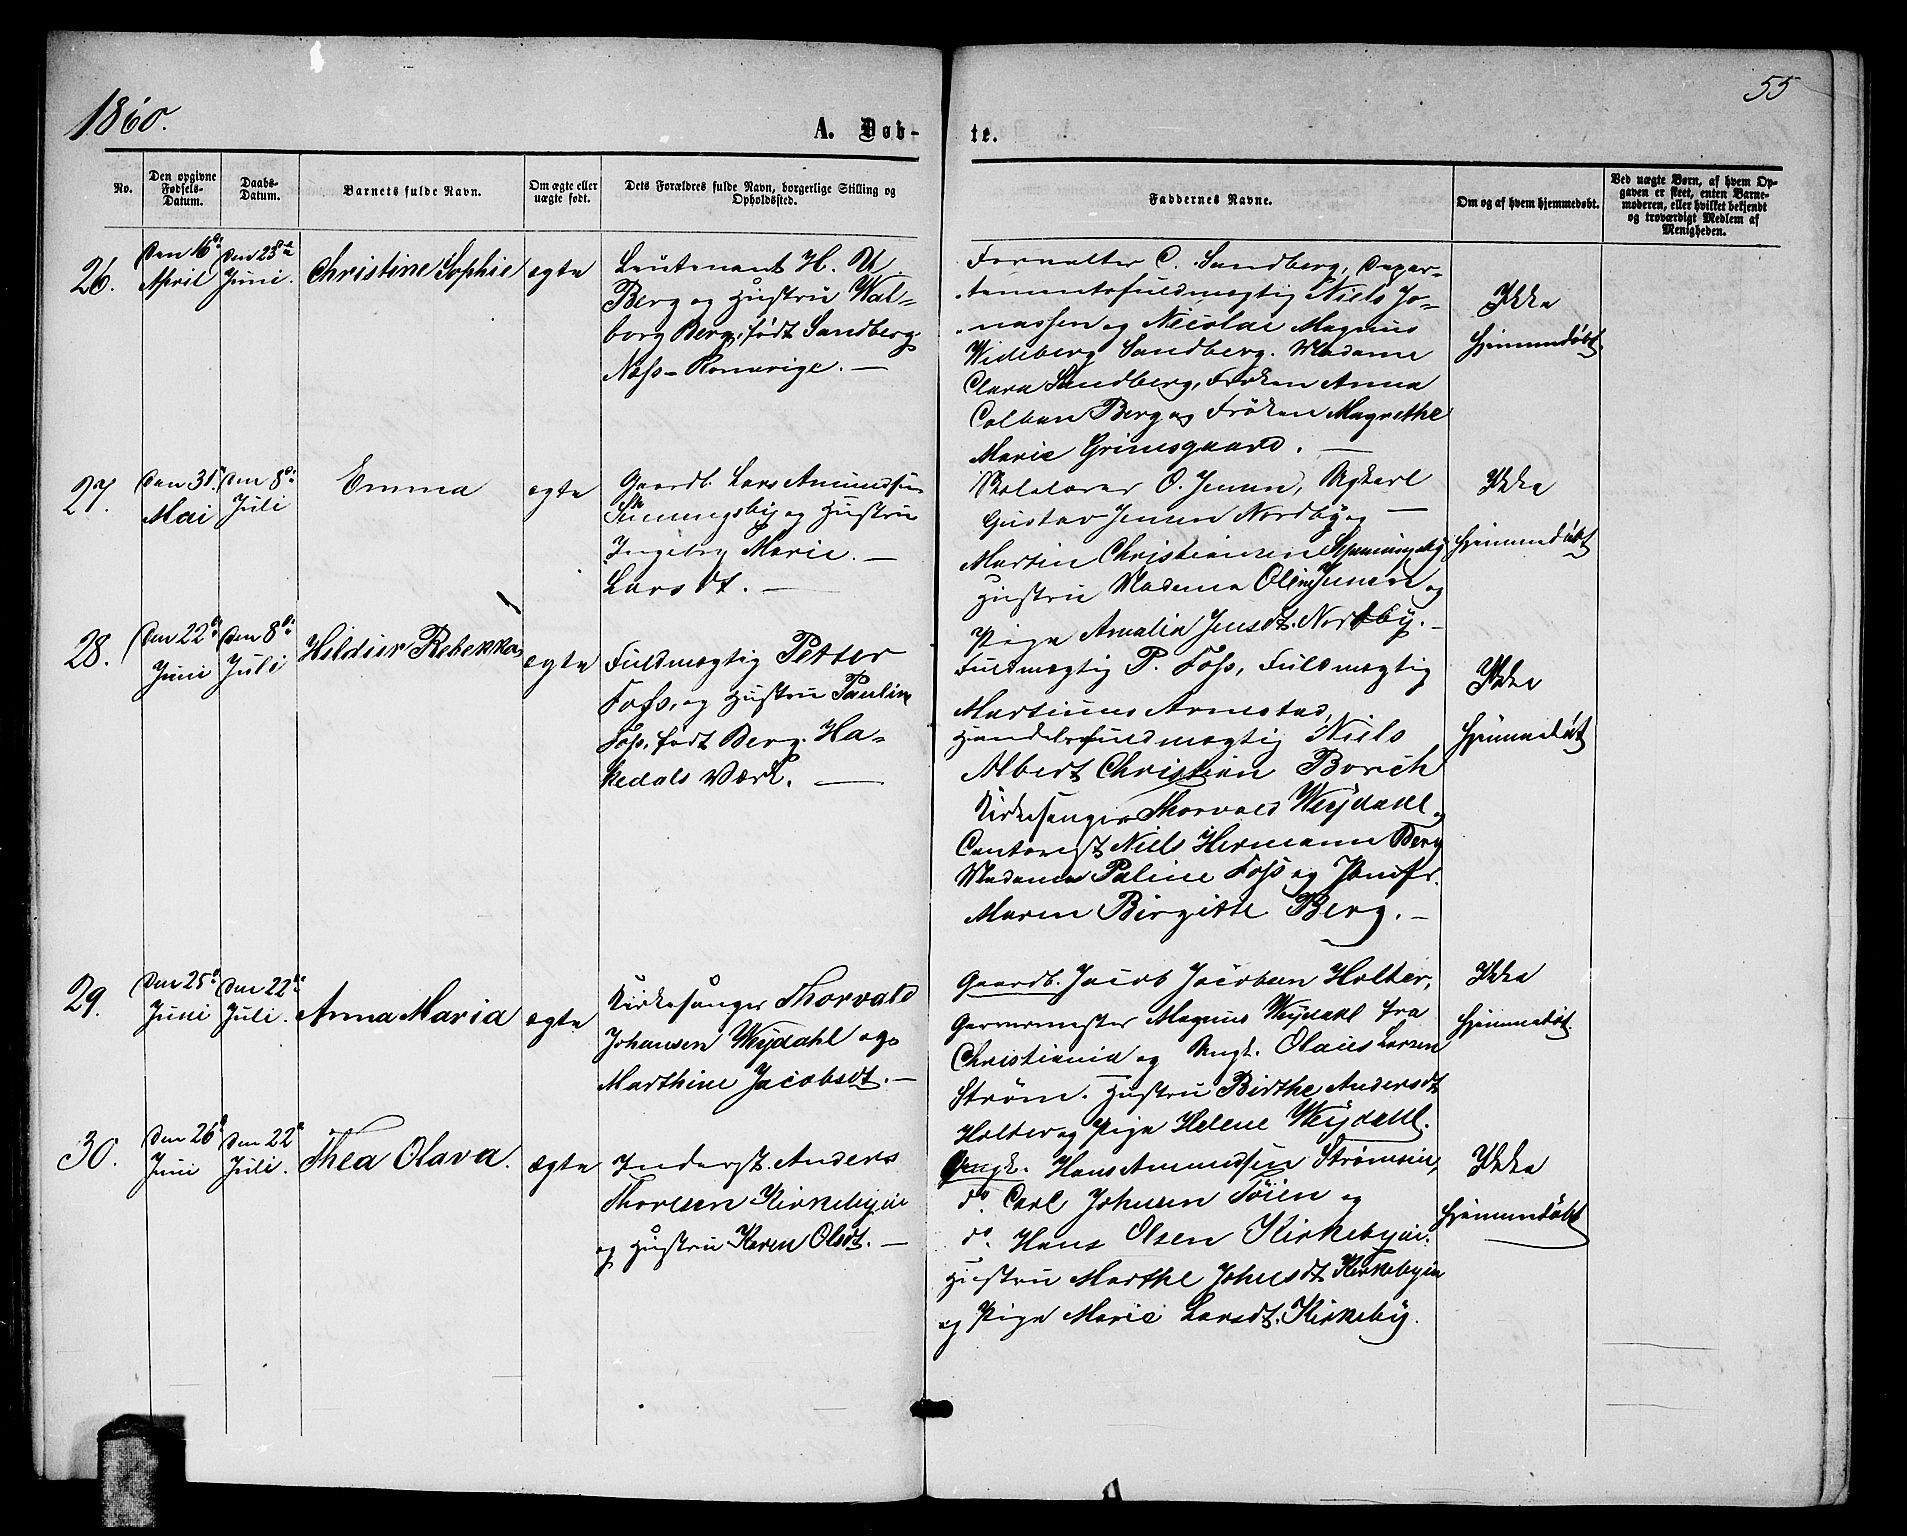 1860.
55
A. Døb-
te.
No.
Den opgivne Fødsels-Datum.
Daabs-Datum.
Barnets fulde Navn.
Om ægte eller uægte født.
Dets Forældres fulde Navn, borgerlige Stilling og Opholdssted.
Faddernes Navne.
Om og af hvem hjemmedøbt.
Ved uægte Børn, af hvem Opgaven er skeet, enten Barnemoderen, eller hvilket bekjendt og troværdigt Medlem af Menigheden.
26.
Den 16de
April
Den 23de
Juni.
Christine Sophie
ægte
Leutenant H. U.
Berg og Hustru Wal-
borg Berg, født Sandberg
Næss-Romerige. —
Forvalter C. Sandberg, Depar-
tementsfuldmægtig Niels Jo-
nassen og Nicolai Magnus
Wideberg Sandberg. Madame
Clara Sandberg, Frøken Anna
Colban Berg og Frøken Magrethe
Marie Grimsgaard. —
Ikke
hjemmedøbt
27.
Den 31te
Mai
Den 8de
Juli
Emma
ægte
Gaardb. Lars Amundsen
og Hustru
Ingeborg Marie —
Larsdt. —
Skolelærer O. Jensen, Ungkarl
Gustav Jensen Nordby og —
Martin Christiansen
Hustru Madame Oline Jensen og
Pige Amalia Jensdt. Nordby. —
Ikke
hjemmedøbt
28.
Den 22de
Juni
Den 8de
Juli
Rebekka
ægte
Fuldmægtig Petter
Foss, og Hustru Pauline
Foss, født Berg. Ha-
kedals Værk. —
Fuldmægtig P. Foss, Fuldmægtig
Martinus Arnestad,
Handelsfuldmægtig Niels
Albert Christian Borch
Kirkesanger Thorvald Weydahl og
Contorist Niels Hermann Berg
Madame Paline Foss og Jomfr.
Maren Birgitte Berg. —
Ikke
hjemmedøbt
29.
Den 25de
Juni
Den 22de
Juli.
Anna Maria
ægte
Kirkesanger Thorvald
Johansen Weydahl og
Marthine Jacobsdt. —
Gaardb. Jacob Jacobsen Holter,
Garvermester Magnus Weydahl fra
Christiania og Ungk. Olaus Larsen
Strøm. Hustru Birthe Andersdt
Holter og Pige Helene Weydahl.
Ikke
hjemmedøbt.
30.
Den 26de
Juni
Den 22de
Juli.
Thea Olava.
ægte
Inderst. Anders
Thorsen Kirkebyeie
og Hustru Karen Olsdt. —
Ungk. Hans Amundsen Strømseie,
do. Carl Johnsen Tøien og
do. Hans Olsen Kirkebyeie.
Hustru Marthe Johnsdt Kirkebyeie
og Pige Marie Larsdt. Kirkeby.
Ikke
hjemmedøbt